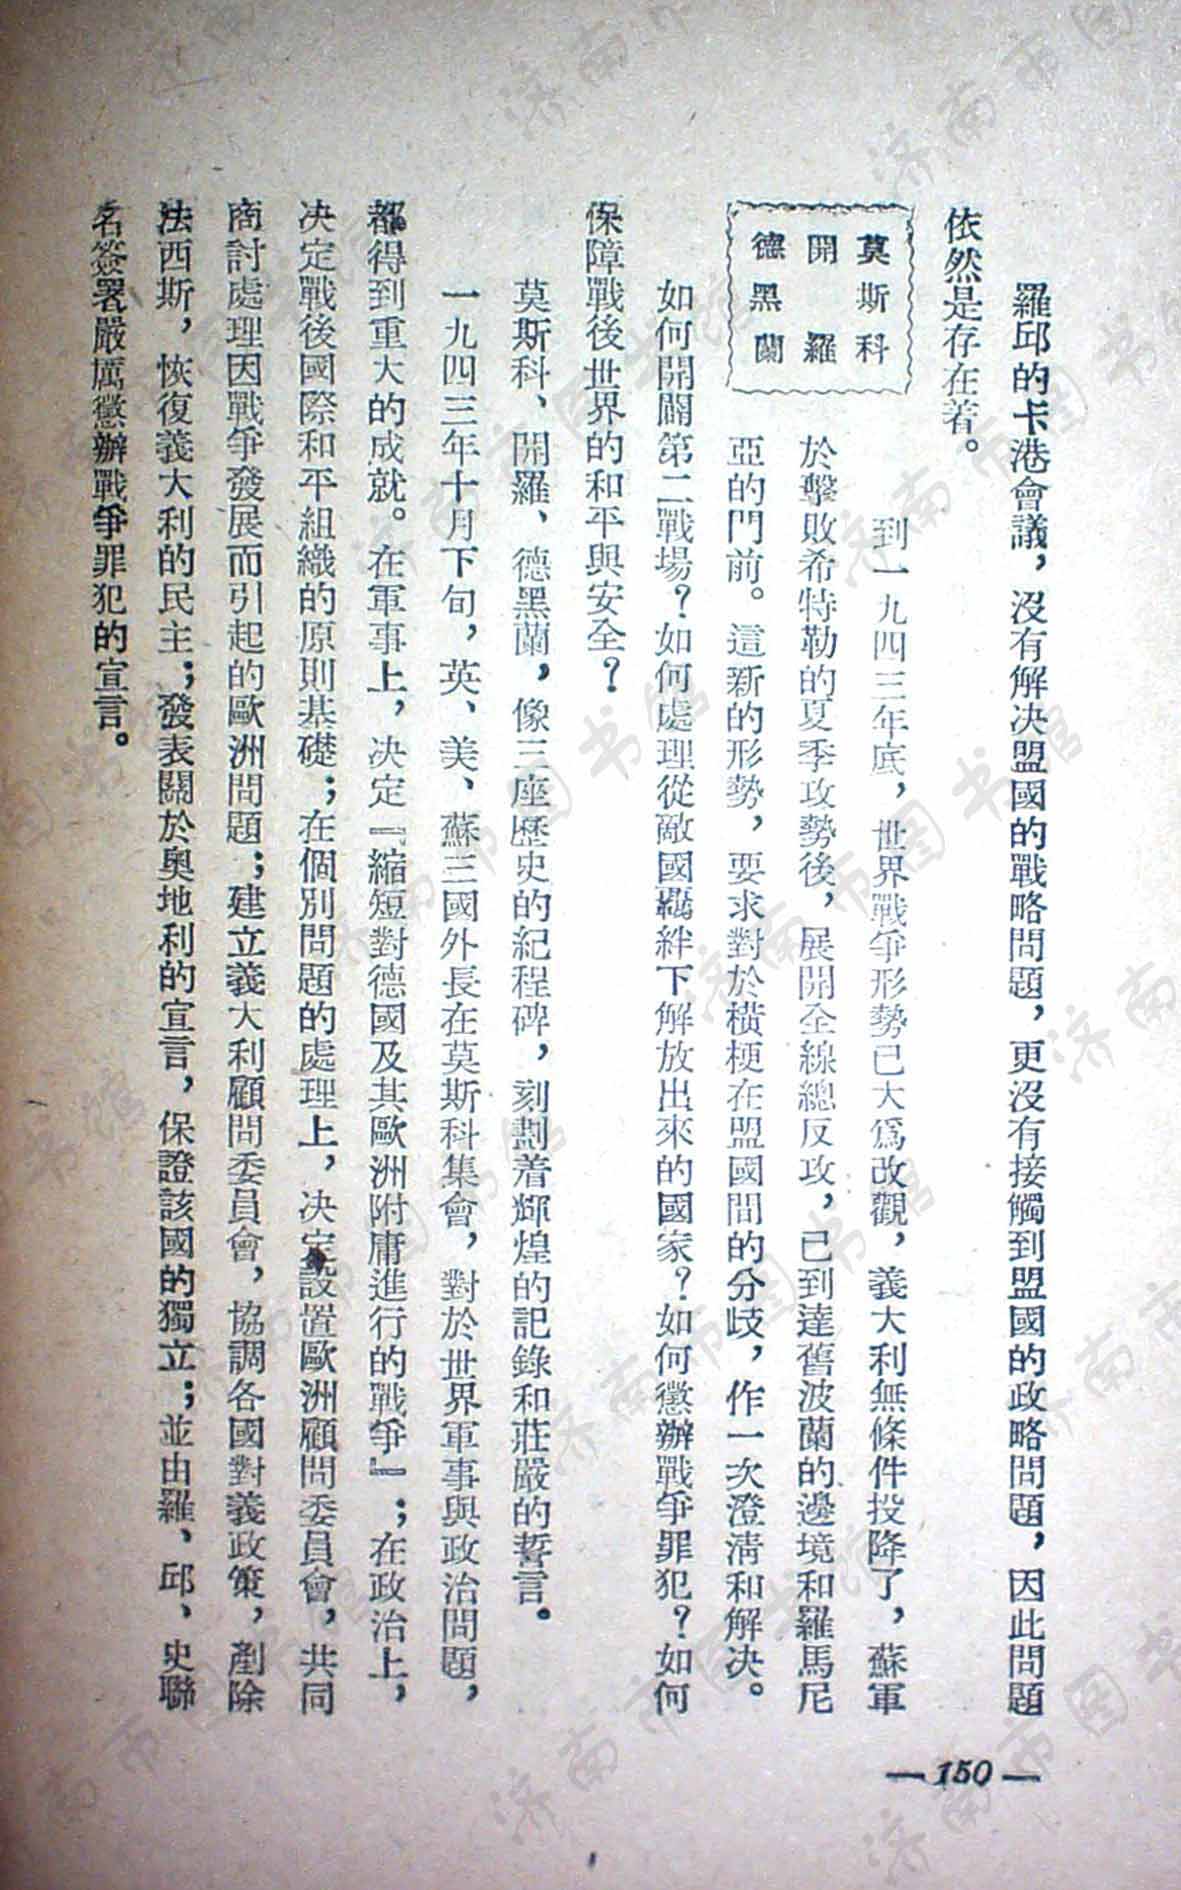 羅邱的卡港會議，沒有解決盟國的戰略問題，更沒有接觸到盟國的政略問題，因此問題
依然是存在着。
莫斯科
開羅
德黑蘭
到一九四三年底，世界戰爭形勢已大爲改觀，義大利無條件投降了，蘇軍
於擊敗希特勒的夏季攻勢後，展開全線總反攻，已到達舊波蘭的邊境和羅馬尼
亞的門前。這新的形勢，要求對於橫梗在盟國間的分歧，作一次澄清和解决。
如何開闢第二戰場？如何處理從敵國羈絆下解放出來的國家？如何懲辦戰爭罪犯？如何
保障戰後世界的和平與安全？
莫斯科、開羅、德黑蘭，像三座歷史的紀程碑，刻劃着輝煌的記錄和莊嚴的誓言。
一九四三年十月下旬，英、美、蘇三國外長在莫斯科集會，對於世界軍事與政治問題，
都得到重大的成就。在軍事上，决定『縮短對德國及其歐洲附庸進行的戰爭』；在政治上，
决定戰後國際和平組織的原則基礎；在個別問題的處理上，决定設置歐洲顧問委員會，共同
商討處理因戰爭發展而引起的歐洲問題；建立義大利顧問委員會，協調各國對義政策，剷除
法西斯，恢復義大利的民主；發表關於奧地利的宣言，保證該國的獨立；並由羅、邱、史聯
名簽署嚴厲懲辦戰爭罪犯的宣言。
— 150 —
济南市图书馆